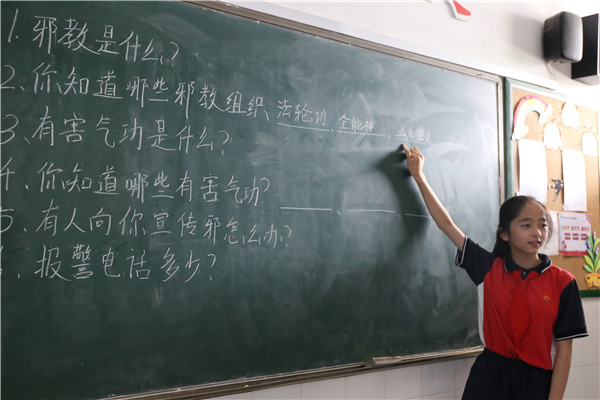 1. 邪教是什么?
2. 你知道哪些邪教组织、法轮功、全能神、
3. 有害气功是什么?
4. 你知道哪些有害气功?
5. 有人向你宣传邪怎么办?
报警电话多少?